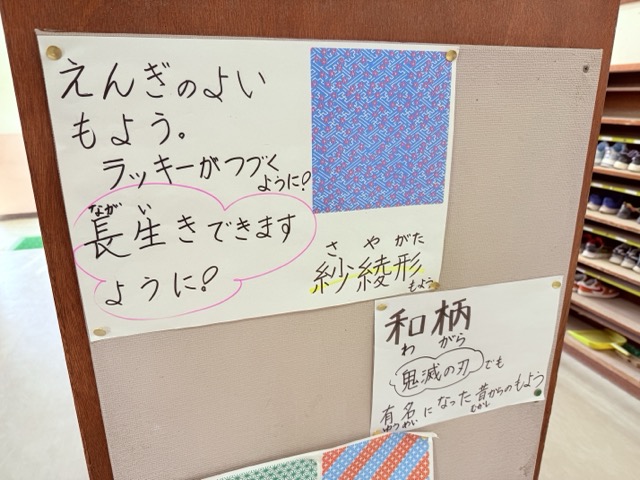 えんぎのよい
もよう。
ラッキーがつづく
ように!
ながい
長生きできます
ように!
さやがた
紗綾形
もよう
和柄
わがら
鬼滅の刃でも
有名になった昔からのもよう
ゆうめい むかし